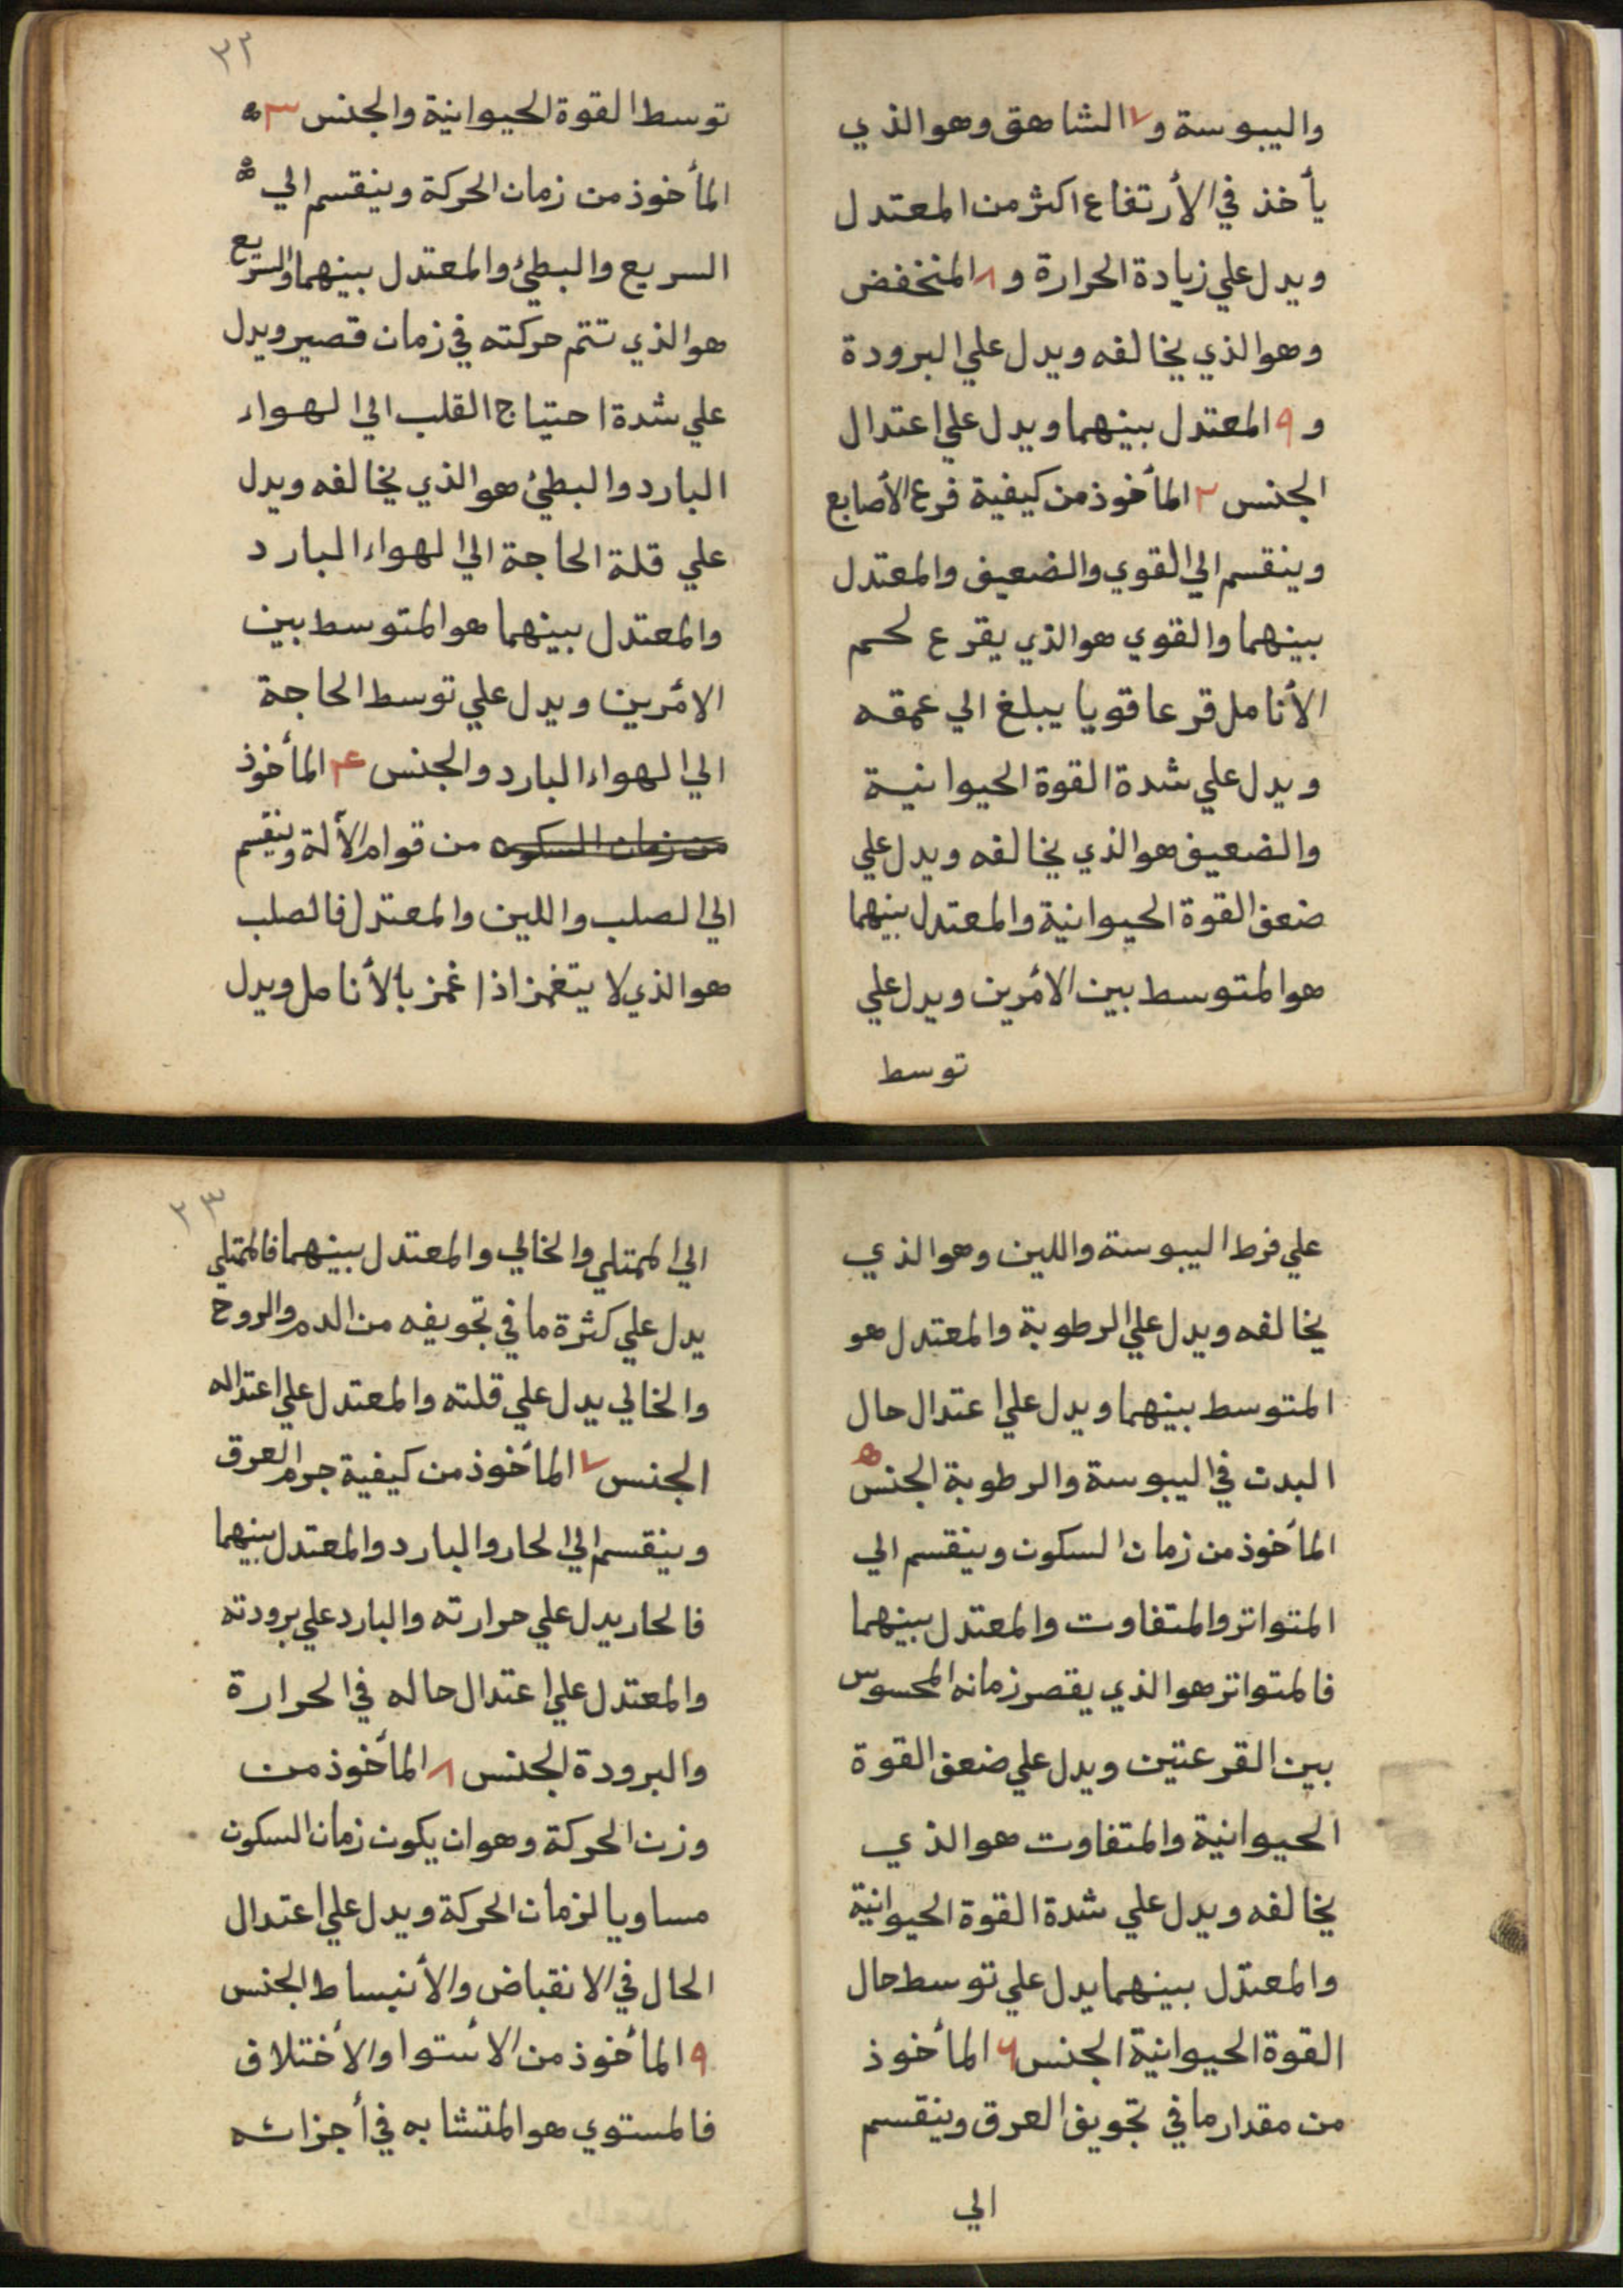 واليبوسة و٧ الشاهق وهوالذي
يأخذ في الأرتفاع اكثر من المعتدل
ويدل علي زيادة الحرارة و٨ المنخفض
وهوالذي يخالفه ويدل علي البرودة
و٩ المعتدل بينهما ويدل علي اعتدال
الجنس ٢ المأخوذ من كيفية قرع الأصابع
وينقسم الي القوي والضعيف والمعتدل
بينهما والقوي هوالذي يقرع لحم
الأنامل قرعا قويا يبلغ الي عمقه
ويدل علي شدة القوة الحيوانية
والضعيف هوالذي يخالفه ويدل علي
ضعف القوة الحيوانية والمعتدل بينهما
هوالمتوسط بين الأمرين ويدل علي
توسط
٢٢
توسط القوة الحيوانية والجنس ٣
المأخوذ من زمان الحركة وينقسم الي
السريع والبطئ والمعتدل بينهما والسريع
هوالذي تتم حركته في زمان قصير ويدل
علي شدة احتياج القلب الي الهواء
البارد والبطئ هوالذي يخالفه ويدل
علي قلة الحاجة الي الهواء البارد
والمعتدل بينهما هوالمتوسط بين
الأمرين ويدل علي توسط الحاجة
الي الهواء البارد والجنس ۴ المأخوذ
من زمان السكون من قوام الألة وينقسم
الي الصلب واللين والمعتدل فالصلب
هوالذي لا يتغمز اذا غمز بالأنامل ويدل
علي فرط اليبوسة واللين وهوالذي
يخالفه ويدل علي الرطوبة والمعتدل هو
المتوسط بينهما ويدل علي اعتدال حال
البدن في اليبوسة والرطوبة الجنس ه
المأخوذ من زمان السكون وينقسم الي
المتواتر والمتفاوت والمعتدل بينهما
فالمتواتر هوالذي يقصر زمانه المحسوس
بين القرعتين ويدل علي ضعف القوة
الحيوانية والمتفاوت هوالذي
يخالفه ويدل علي شدة القوة الحيوانية
والمعتدل بينهما يدل علي توسط حال
القوة الحيوانية الجنس ۶ المأخوذ
من مقدار ما في تجويف العرق وينقسم
الي
٢٣
الي الممتلي والخالي والمعتدل بينهما فالممتلي
يدل علي كثرة ما في تجويفه من الدم والروح
والخالي يدل علي قلته والمعتدل علي اعتداله
الجنس ٧ المأخوذ من كيفية جرم العرق
وينقسم الي الحار والبارد والمعتدل بينهما
فالحار يدل علي حرارته والبارد علي برودته
والمعتدل علي اعتدال حاله في الحرارة
والبرودة الجنس ٨ المأخوذ من
وزن الحركة وهوان يكون زمان السكون
مساويا لزمان الحركة ويدل علي اعتدال
الحال في الانقباض والأنبساط الجنس
٩ المأخوذ من الأستوا والأختلاف
فالمستوي هوالمتشابه في أجزائه